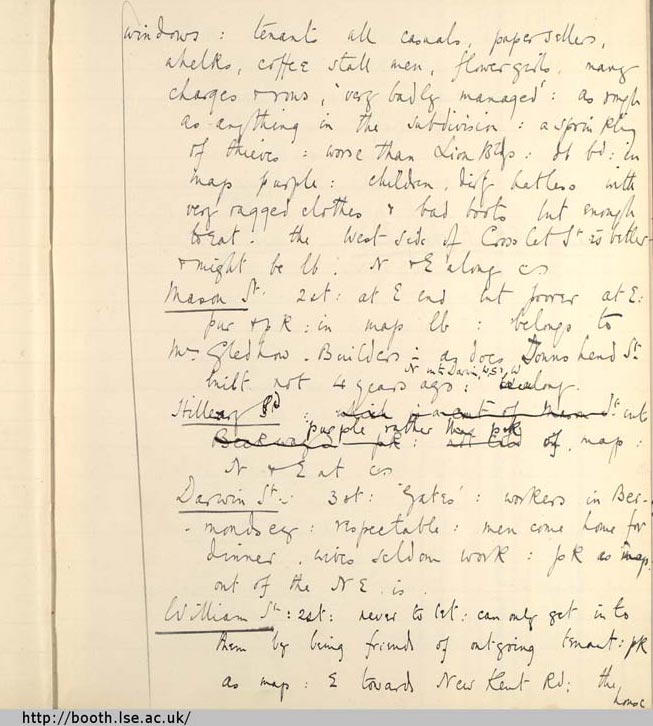 windows : tenants all casuals, papersellers,
whelks, coffee stall men, flowergirls. many
charges & rows, 'very badly managed' : as rough
as anything in the subdivision : a sprinkling
of thieves : worse than Lion Bldgs : db bd : in
map purple : children, dirty hatless with
very ragged clothes & bad boots but enough
to eat. the West side of Cross Cct St is better
& might be lb. N & E along
Mason St. 2 st : at E end but poorer at E :
pur & pk : in map lb : belongs to
Mr Gledhow. Builders - as does Townshend St
built not 4 years ago : along.
N into Darwin St, W
Stillery Rd : which is a cont of Mason St int
purple rather than pink
Backways pk : not of map :
N & E at
Darwin St. : 3 st : 'Gates' : workers in Ber-
-mondsey : respectable : men come home for
dinner, wives seldom work : pk as map.
out of the N E. is.
William St : 2 st : never to let : can only get in to
them by being friends of outgoing tenant : pk
as map : E towards New Kent Rd ; the
house
http://booth.lse.ac.uk/